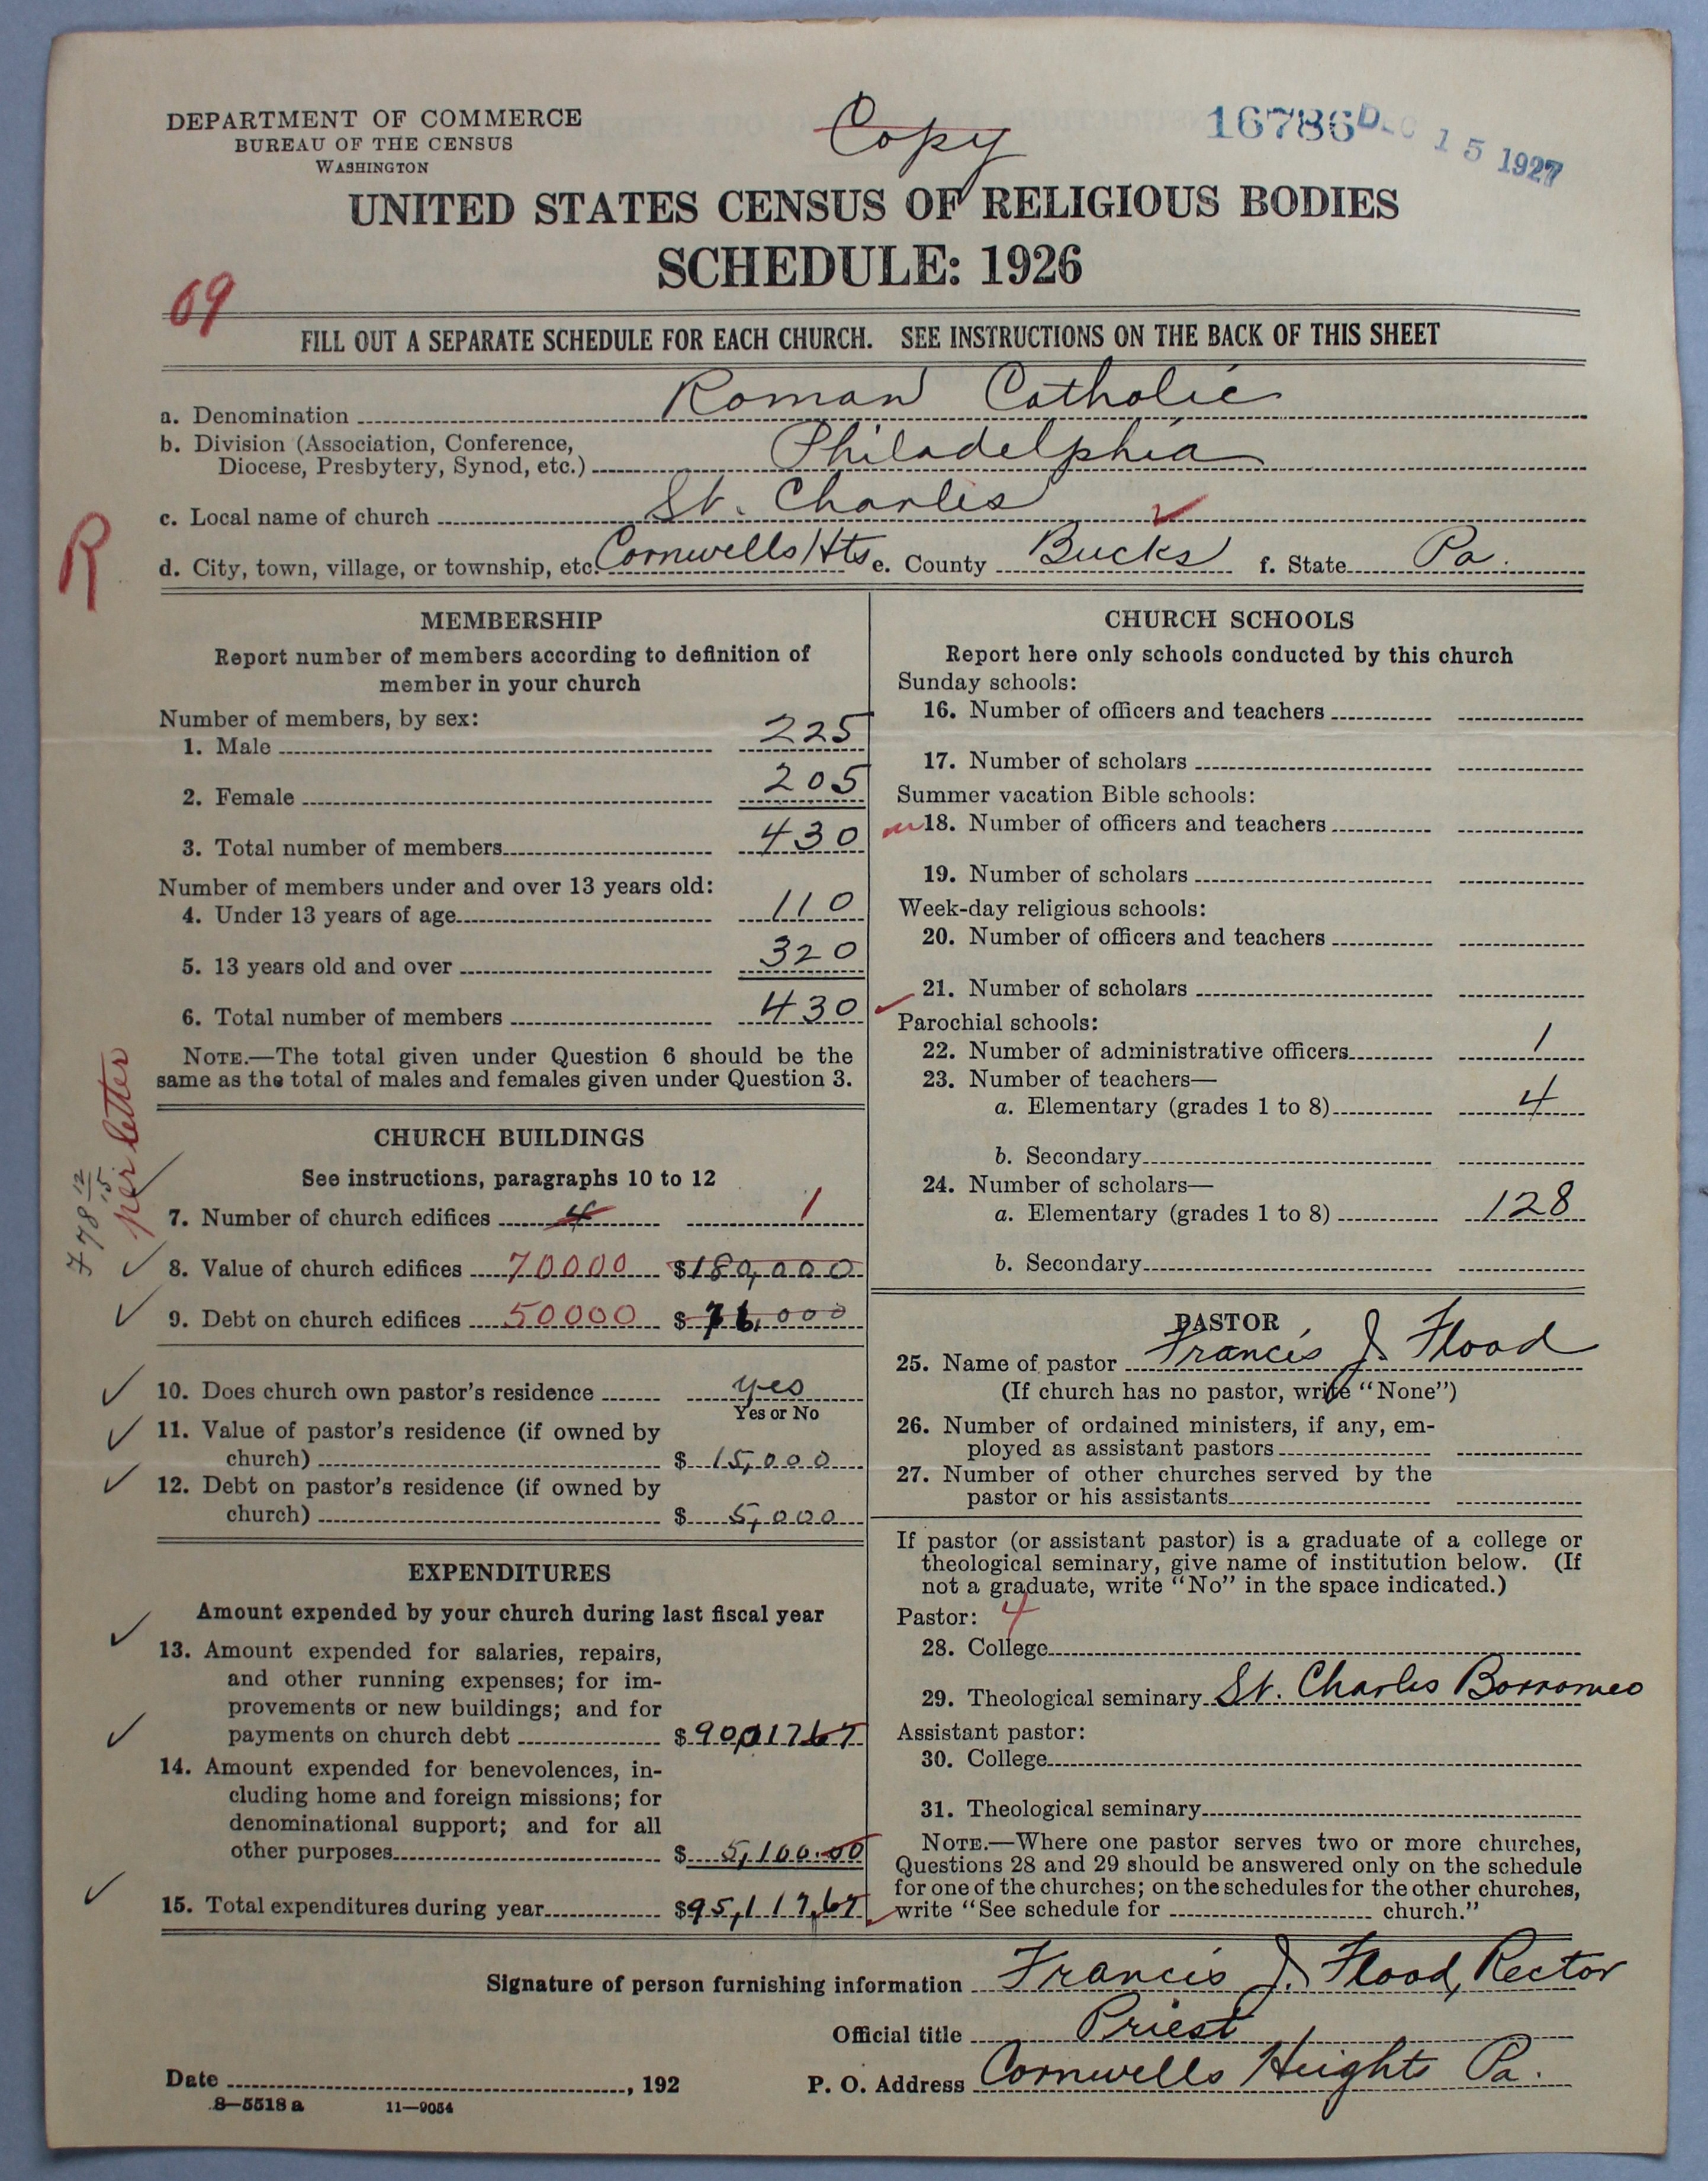 DEPARTMENT OF COMMERCE
BUREAU OF THE CENSUS
WASHINGTON
Copy
16786
DEC 15 1927
UNITED STATES CENSUS OF RELIGIOUS BODIES
SCHEDULE: 1926
69
FILL OUT A SEPARATE SCHEDULE FOR EACH CHURCH. SEE INSTRUCTIONS ON THE BACK OF THIS SHEET
a. Denomination Roman Catholic
b. Division (Association, Conference,
Diocese, Presbytery, Synod, etc.) Philadelphia
c. Local name of church St. Charles
R
d. City, town, village, or township, etc. Cornwells Hts e. County Bucks f. State Pa.
MEMBERSHIP
Report number of members according to definition of
member in your church
Number of members, by sex:
1. Male 225
2. Female 205
3. Total number of members 430
Number of members under and over 13 years old:
4. Under 13 years of age 110
5. 13 years old and over 320
6. Total number of members 430
NOTE.—The total given under Question 6 should be the
same as the total of males and females given under Question 3.
CHURCH BUILDINGS
See instructions, paragraphs 10 to 12
per letter
7. Number of church edifices 4 1
8. Value of church edifices 70000 $180,000
9. Debt on church edifices 50000 $76,000
10. Does church own pastor's residence yes
Yes or No
11. Value of pastor's residence (if owned by
church) $15,000
12. Debt on pastor's residence (if owned by
church) $5,000
EXPENDITURES
Amount expended by your church during last fiscal year
13. Amount expended for salaries, repairs,
and other running expenses; for im-
provements or new buildings; and for
payments on church debt $90,017.67
14. Amount expended for benevolences, in-
cluding home and foreign missions; for
denominational support; and for all
other purposes $5,100.00
15. Total expenditures during year $95,117.67
CHURCH SCHOOLS
Report here only schools conducted by this church
Sunday schools:
16. Number of officers and teachers
17. Number of scholars
Summer vacation Bible schools:
18. Number of officers and teachers
19. Number of scholars
Week-day religious schools:
20. Number of officers and teachers
21. Number of scholars
Parochial schools:
22. Number of administrative officers 1
23. Number of teachers—
a. Elementary (grades 1 to 8) 4
b. Secondary
24. Number of scholars—
a. Elementary (grades 1 to 8) 128
b. Secondary
PASTOR
25. Name of pastor Francis J. Flood
(If church has no pastor, write "None")
26. Number of ordained ministers, if any, em-
ployed as assistant pastors
27. Number of other churches served by the
pastor or his assistants
If pastor (or assistant pastor) is a graduate of a college or
theological seminary, give name of institution below. (If
not a graduate, write "No" in the space indicated.)
Pastor: 4
28. College
29. Theological seminary St. Charles Borromeo
Assistant pastor:
30. College
31. Theological seminary
NOTE.—Where one pastor serves two or more churches,
Questions 28 and 29 should be answered only on the schedule
for one of the churches; on the schedules for the other churches,
write "See schedule for church."
Signature of person furnishing information Francis J. Flood, Rector
Official title Priest
Date , 192 P. O. Address Cornwells Heights Pa.
8—5518 a 11—9054